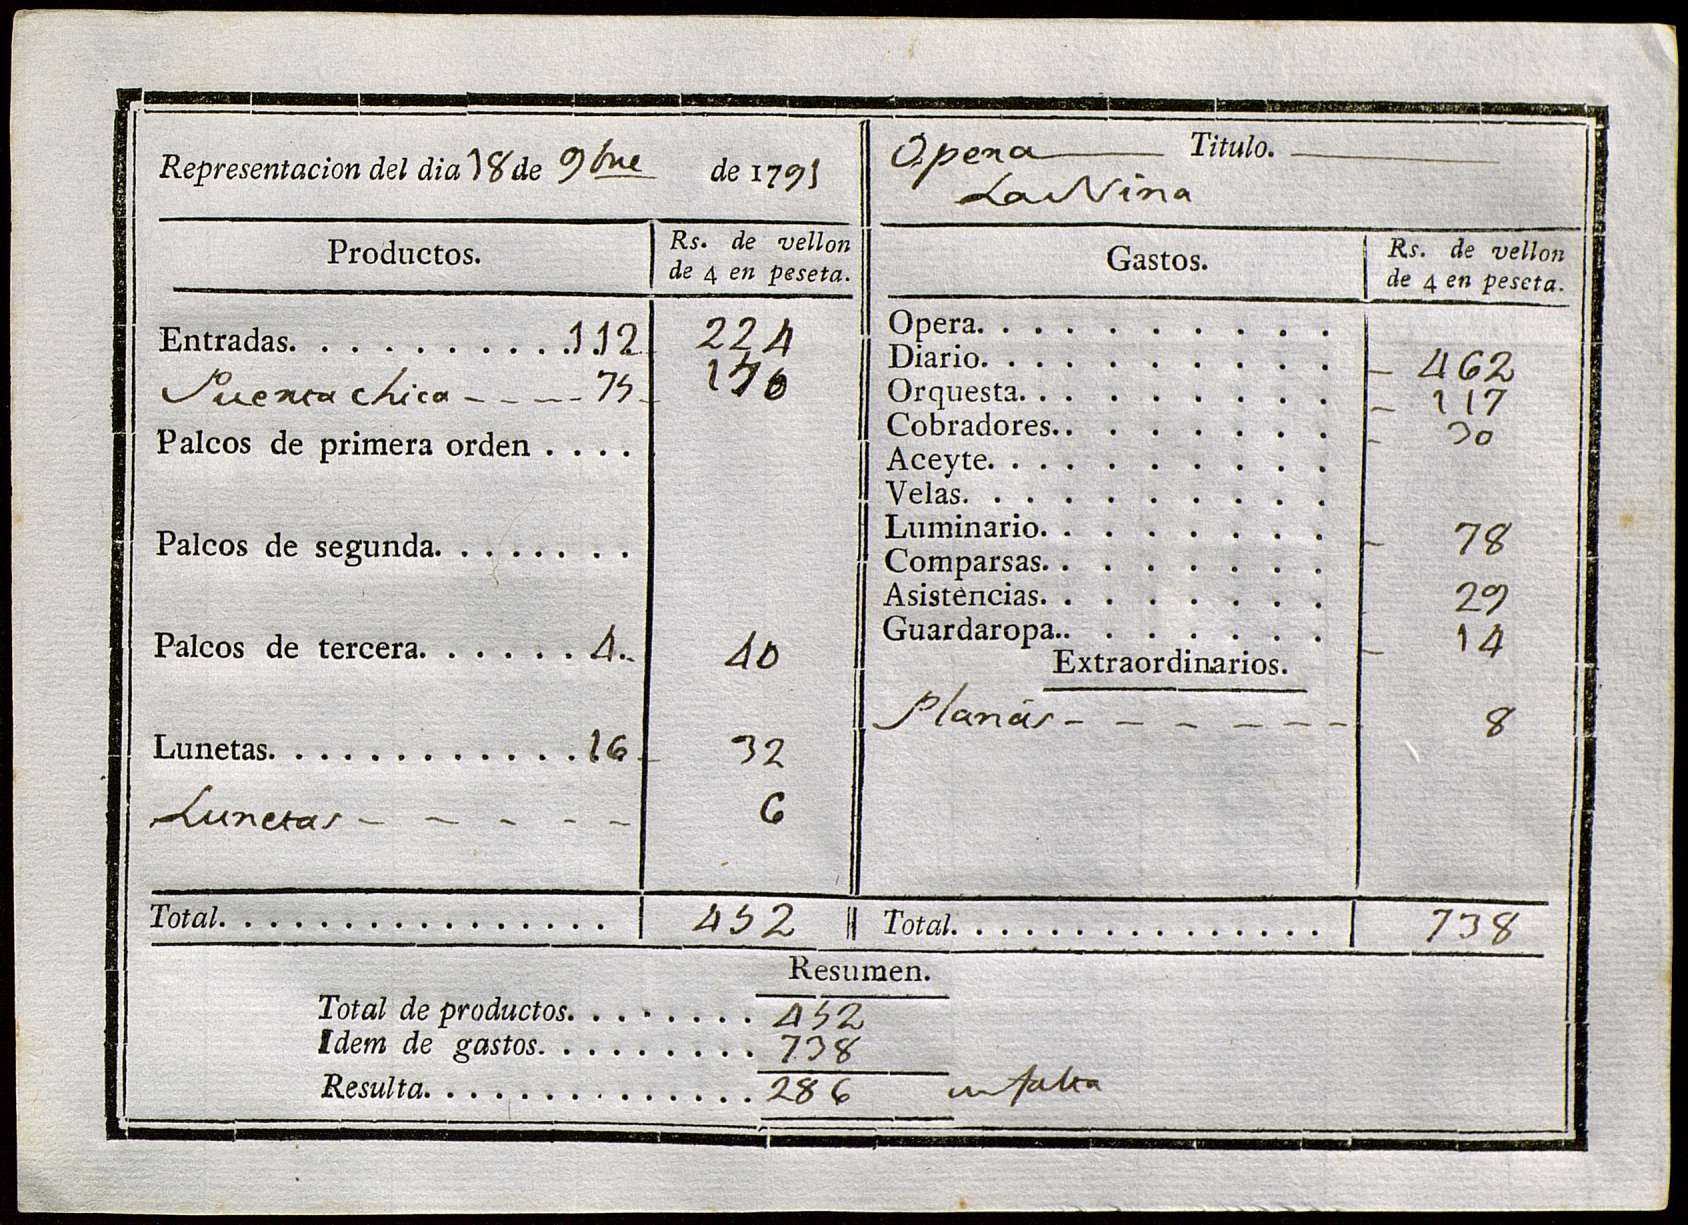 Representacion del dia 18 de 9bre de 1791
Opera Titulo.
La Nina
Productos. Rs. de vellon de 4 en peseta.
Entradas. . . . . . . . . . . 112 224
Puerta chica - - - - - 75 150
Palcos de primera orden . . . .
Palcos de segunda. . . . . . . .
Palcos de tercera. . . . . . . 4 40
Lunetas. . . . . . . . . . . . . 16 32
Lunetas - - - - - - 6
Total. . . . . . . . . . . . . . . . . 452
Gastos. Rs. de vellon de 4 en peseta.
Opera. . . . . . . . . . .
Diario. . . . . . . . . . . 462
Orquesta. . . . . . . . . 117
Cobradores.. . . . . . . 30
Aceyte. . . . . . . . . . .
Velas. . . . . . . . . . . .
Luminario. . . . . . . . 78
Comparsas. . . . . . . .
Asistencias. . . . . . . . 29
Guardaropa.. . . . . . . 14
Extraordinarios.
Planás - - - - - - - 8
Total. . . . . . . . . . . . . . . . 738
Resumen.
Total de productos. . . . . . . . 452
Idem de gastos. . . . . . . . . 738
Resulta. . . . . . . . . . . . . . 286 en falta